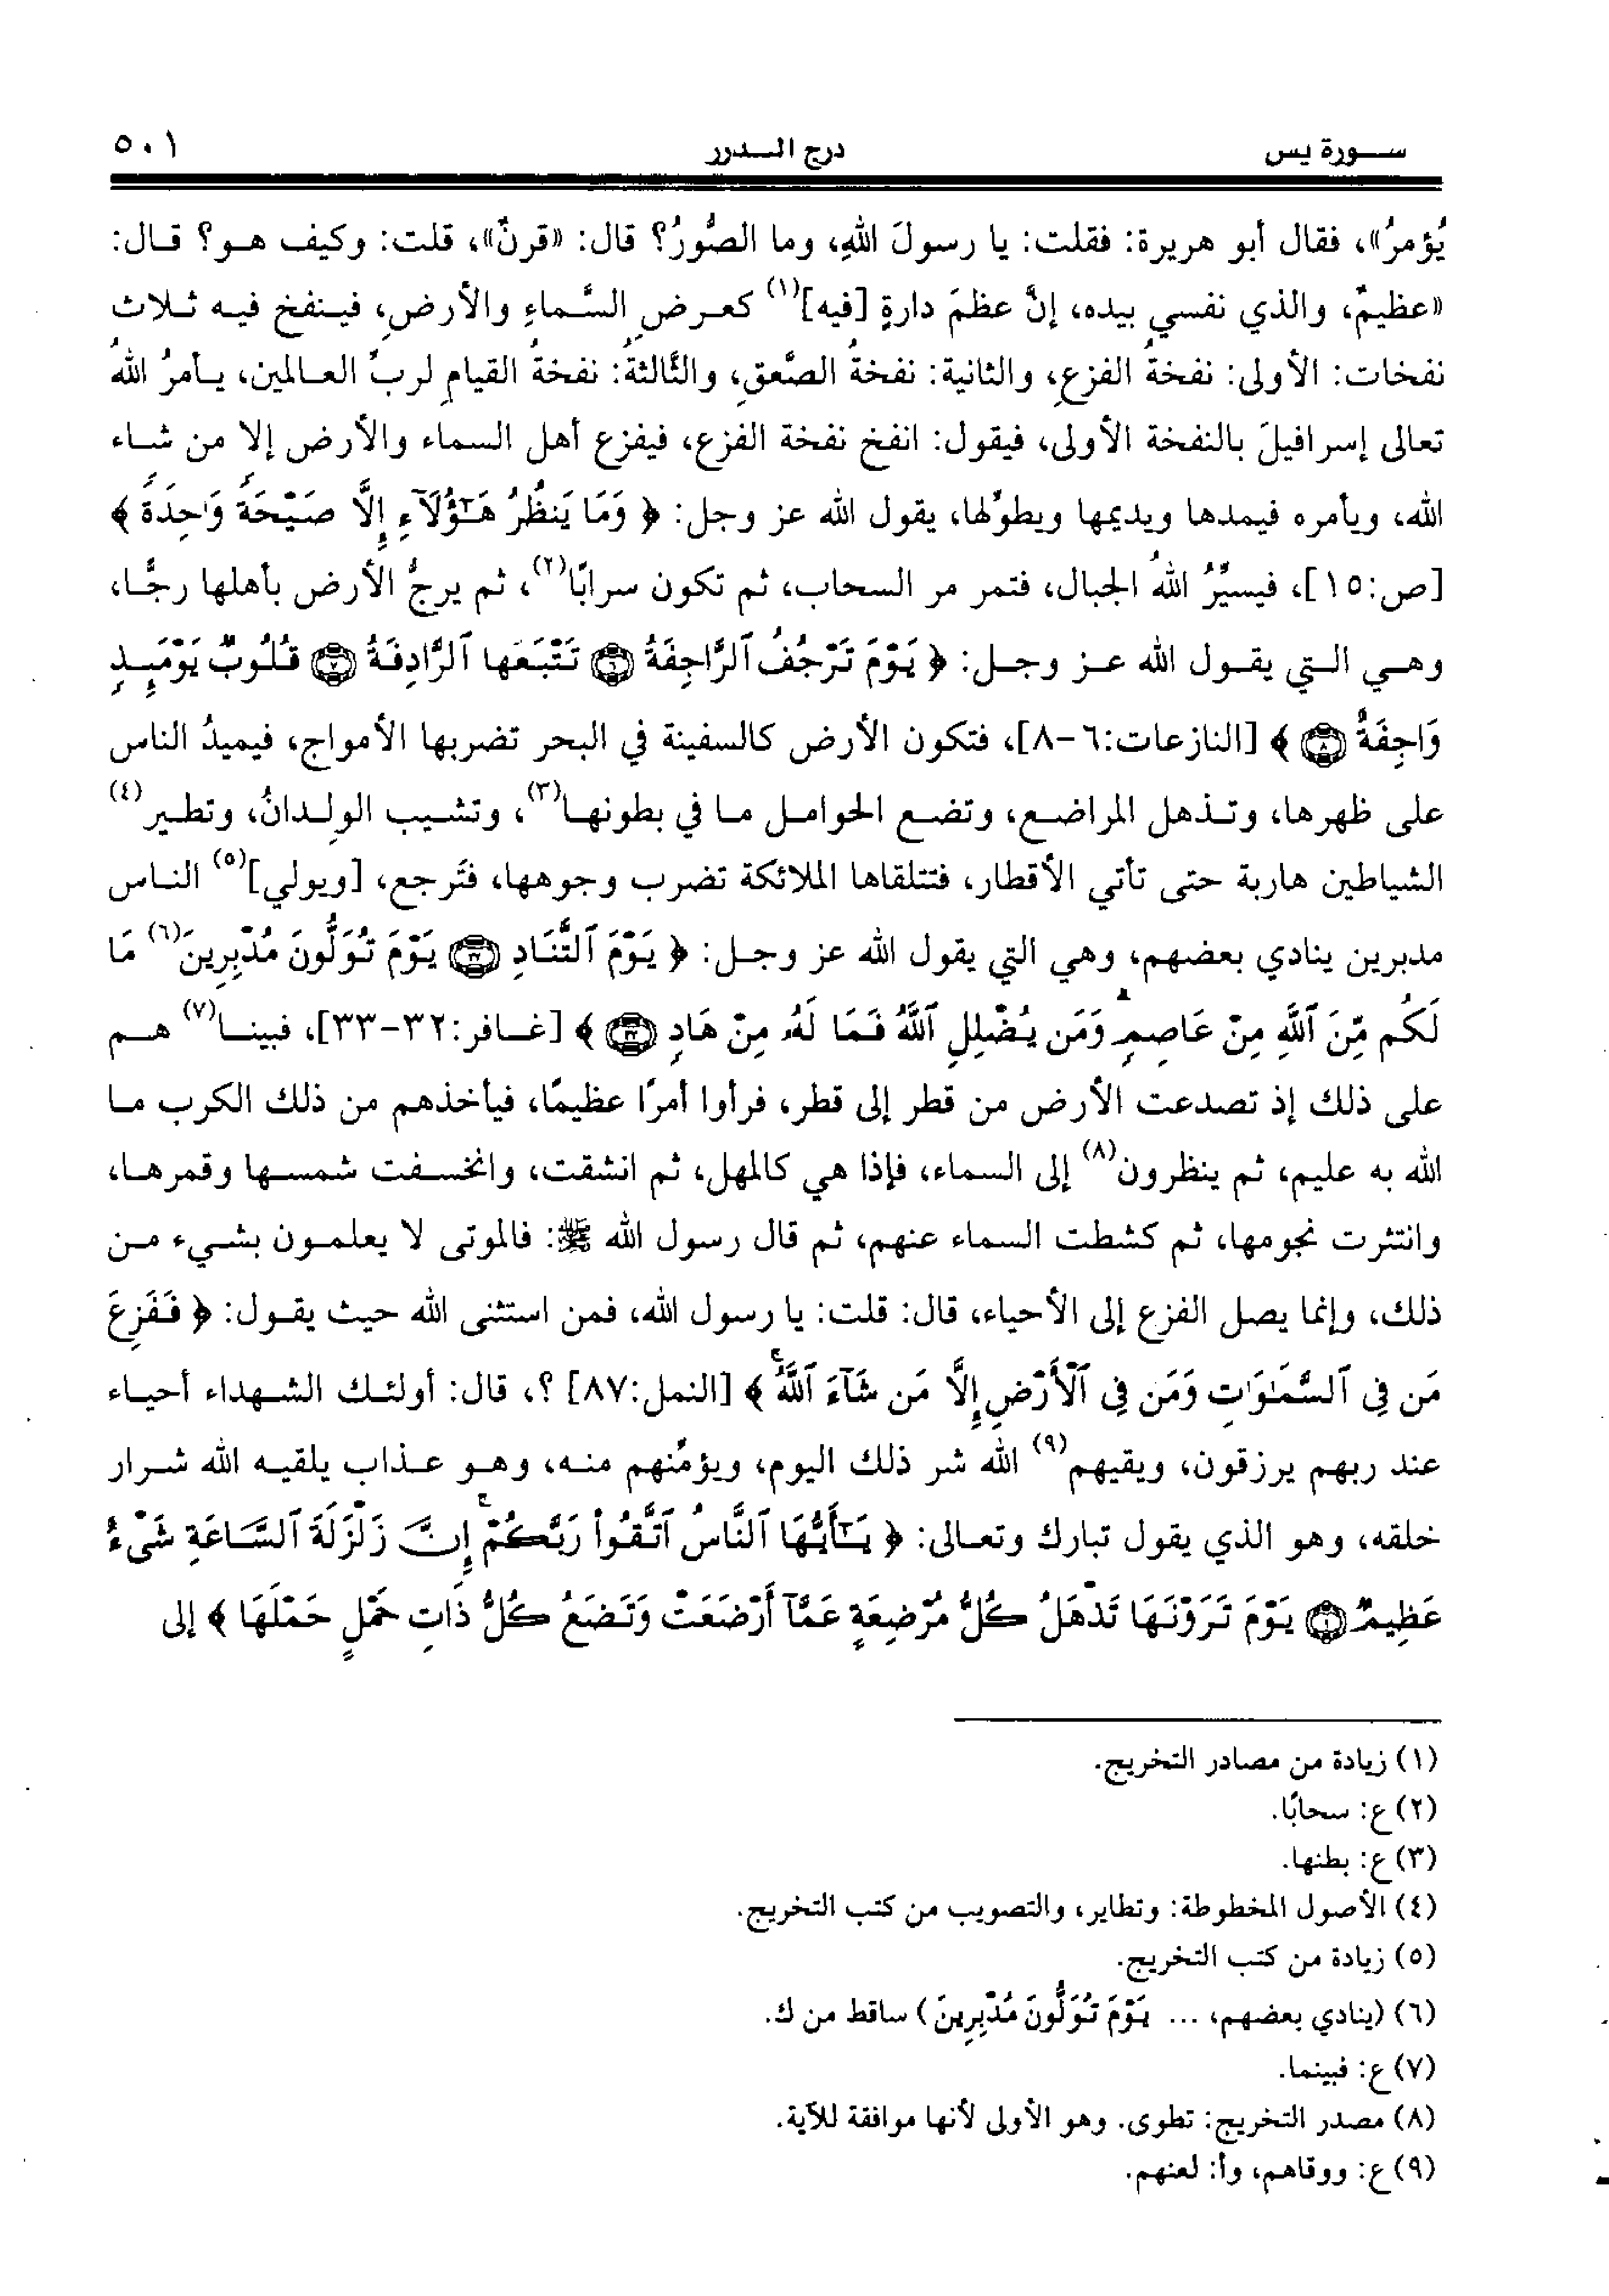 سورة يس درج الدرر ٥٠١
يُؤمرُ»، فقال أبو هريرة: فقلت: يا رسولَ اللهِ، وما الصُّورُ؟ قال: «قرنٌ»، قلت: وكيف هو؟ قال:
«عظيمٌ، والذي نفسي بيده، إنَّ عظمَ دارةٍ [فيه](١) كعرضِ السَّماءِ والأرضِ، فينفخ فيه ثلاث
نفخات: الأولى: نفخةُ الفزعِ، والثانية: نفخةُ الصَّعقِ، والثَّالثةُ: نفخةُ القيامِ لربِّ العالمين، يأمرُ اللهُ
تعالى إسرافيلَ بالنفخة الأولى، فيقول: انفخ نفخة الفزع، فيفزع أهل السماء والأرض إلا من شاء
الله، ويأمره فيمدها ويديمها ويطوِّلها، يقول الله عز وجل: ﴿ وَمَا يَنظُرُ هَـٰٓؤُلَآءِ إِلَّا صَيْحَةً وَٰحِدَةً ﴾
[ص:١٥]، فيسيِّرُ اللهُ الجبال، فتمر مر السحاب، ثم تكون سرابًا(٢)، ثم يرجُّ الأرض بأهلها رجًّا،
وهي التي يقول الله عز وجل: ﴿ يَوْمَ تَرْجُفُ ٱلرَّاجِفَةُ ٦ تَتْبَعُهَا ٱلرَّادِفَةُ ٧ قُلُوبٌ يَوْمَئِذٍ
وَاجِفَةٌ ٨ ﴾ [النازعات:٦-٨]، فتكون الأرض كالسفينة في البحر تضربها الأمواج، فيميدُ الناس
على ظهرها، وتذهل المراضع، وتضع الحوامل ما في بطونها(٣)، وتشيب الوِلدانُ، وتطير(٤)
الشياطين هاربة حتى تأتي الأقطار، فتتلقاها الملائكة تضرب وجوهها، فتَرجع، [ويولي](٥) الناس
مدبرين ينادي بعضهم، وهي التي يقول الله عز وجل: ﴿ يَوْمَ ٱلتَّنَادِ ٣٢ يَوْمَ تُوَلُّونَ مُدْبِرِينَ(٦) مَا
لَكُم مِّنَ ٱللَّهِ مِنْ عَاصِمٍ وَمَن يُضْلِلِ ٱللَّهُ فَمَا لَهُۥ مِنْ هَادٍ ٣٣ ﴾ [غافر:٣٢-٣٣]، فبينا(٧) هم
على ذلك إذ تصدعت الأرض من قطر إلى قطر، فرأوا أمرًا عظيمًا، فيأخذهم من ذلك الكرب ما
الله به عليم، ثم ينظرون(٨) إلى السماء، فإذا هي كالمهل، ثم انشقت، وانخسفت شمسها وقمرها،
وانتثرت نجومها، ثم كشطت السماء عنهم، ثم قال رسول الله ﷺ: فالموتى لا يعلمون بشيء من
ذلك، وإنما يصل الفزع إلى الأحياء، قال: قلت: يا رسول الله، فمن استثنى الله حيث يقول: ﴿ فَفَزِعَ
مَن فِى ٱلسَّمَـٰوَٰتِ وَمَن فِى ٱلْأَرْضِ إِلَّا مَن شَآءَ ٱللَّهُ ۚ ﴾ [النمل:٨٧] ؟، قال: أولئك الشهداء أحياء
عند ربهم يرزقون، ويقيهم(٩) الله شر ذلك اليوم، ويؤمِّنهم منه، وهو عذاب يلقيه الله شرار
خلقه، وهو الذي يقول تبارك وتعالى: ﴿ يَـٰٓأَيُّهَا ٱلنَّاسُ ٱتَّقُوا۟ رَبَّكُمْ ۚ إِنَّ زَلْزَلَةَ ٱلسَّاعَةِ شَىْءٌ
عَظِيمٌ ١ يَوْمَ تَرَوْنَهَا تَذْهَلُ كُلُّ مُرْضِعَةٍ عَمَّآ أَرْضَعَتْ وَتَضَعُ كُلُّ ذَاتِ حَمْلٍ حَمْلَهَا ﴾ إلى
(١) زيادة من مصادر التخريج.
(٢) ع: سحابًا.
(٣) ع: بطنها.
(٤) الأصول المخطوطة: وتطاير، والتصويب من كتب التخريج.
(٥) زيادة من كتب التخريج.
(٦) (ينادي بعضهم، ... يَوْمَ تُوَلُّونَ مُدْبِرِينَ) ساقط من ك.
(٧) ع: فبينما.
(٨) مصدر التخريج: تطوى. وهو الأولى لأنها موافقة للآية.
(٩) ع: ووقاهم، وأ: لعنهم.